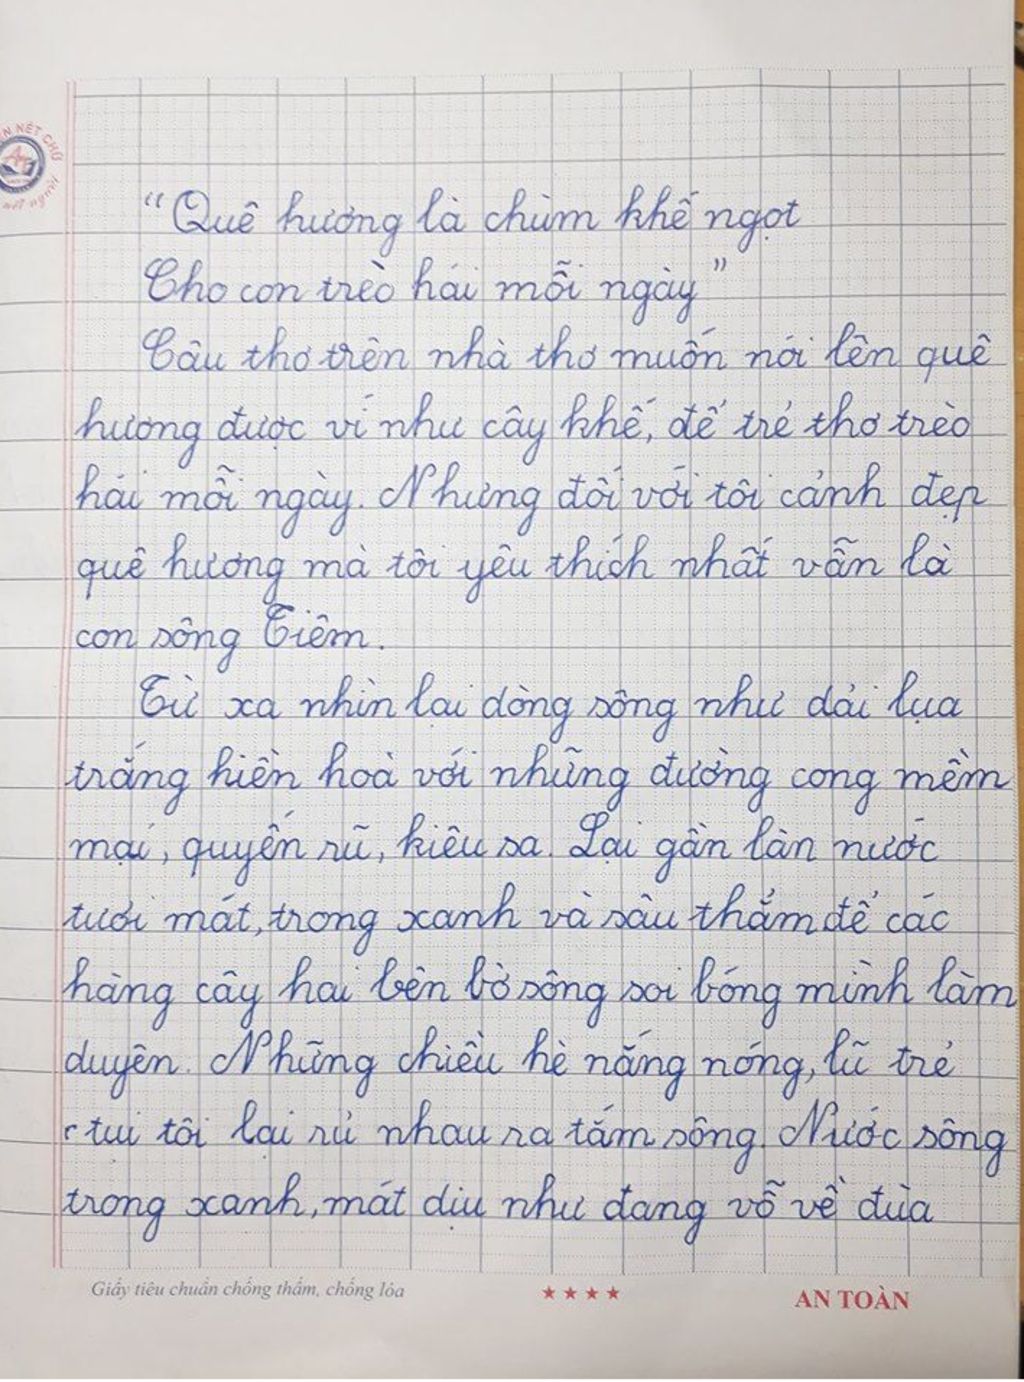 "Quê hương là chùm khế ngọt
Cho con trèo hái mỗi ngày"
Câu thơ trên nhà thơ muốn nói lên quê
hương được ví như cây khế, để trẻ thơ trèo
hái mỗi ngày. Nhưng đối với tôi cảnh đẹp
quê hương mà tôi yêu thích nhất vẫn là
con sông Tiêm.
Từ xa nhìn lại dòng sông như dải lụa
trắng hiền hoà với những đường cong mềm
mại, quyến rũ, kiêu sa. Lại gần làn nước
tươi mát, trong xanh và sâu thẳm để các
hàng cây hai bên bờ sông soi bóng mình làm
duyên. Những chiều hè nắng nóng, lũ trẻ
tui tôi lại rủ nhau ra tắm sông. Nước sông
trong xanh, mát dịu như đang vỗ về đùa
Giấy tiêu chuẩn chống thấm, chống lóa
AN TOÀN